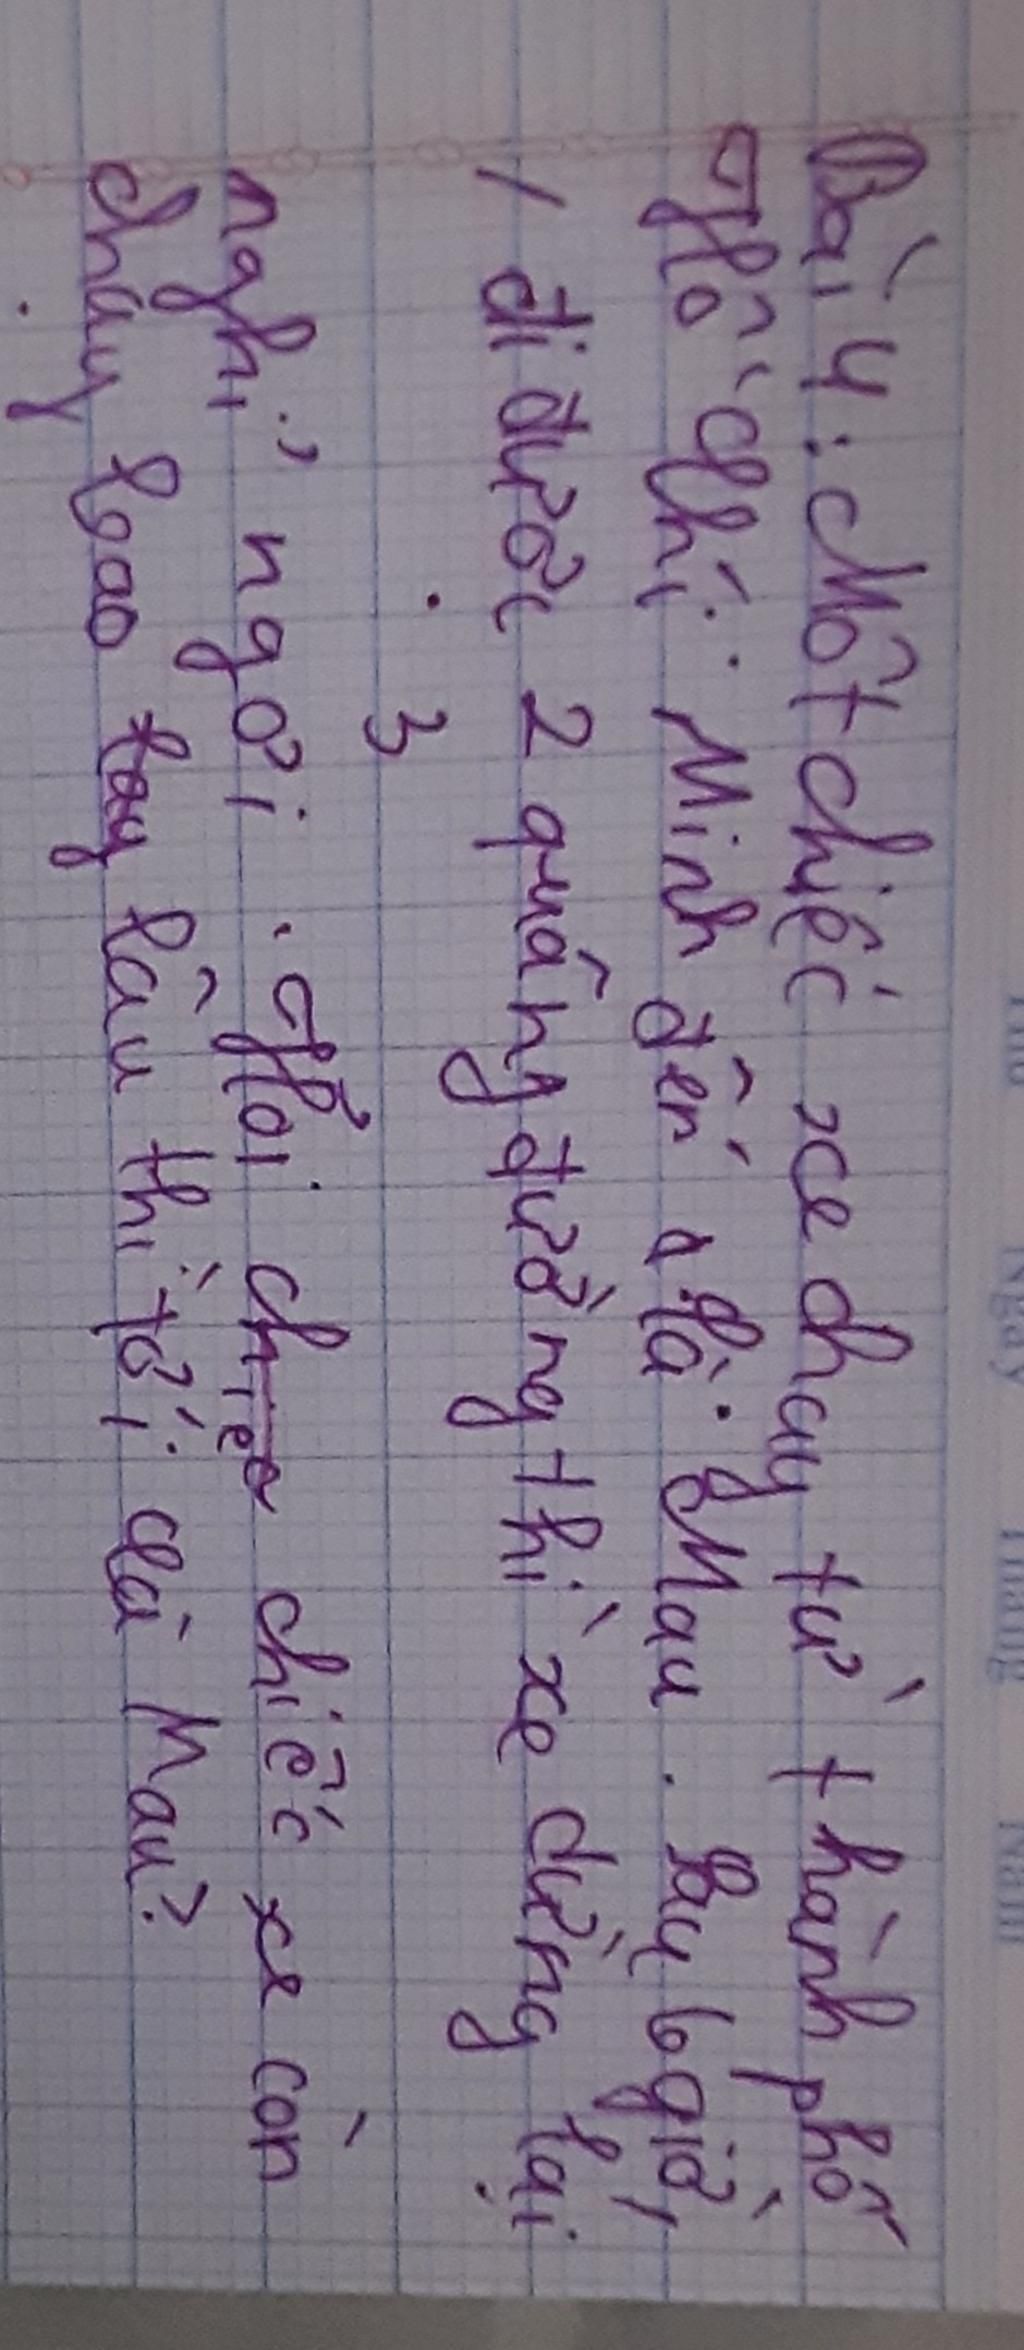 Bài 4: Một chiếc xe chạy từ thành phố
Hồ Chí Minh đến Cà Mau. Sau 6 giờ,
đi được 2 quãng đường thì xe dừng lại
3
nghỉ ngơi. Hỏi chiếc xe còn
chạy bao lâu thì tới Cà Mau?